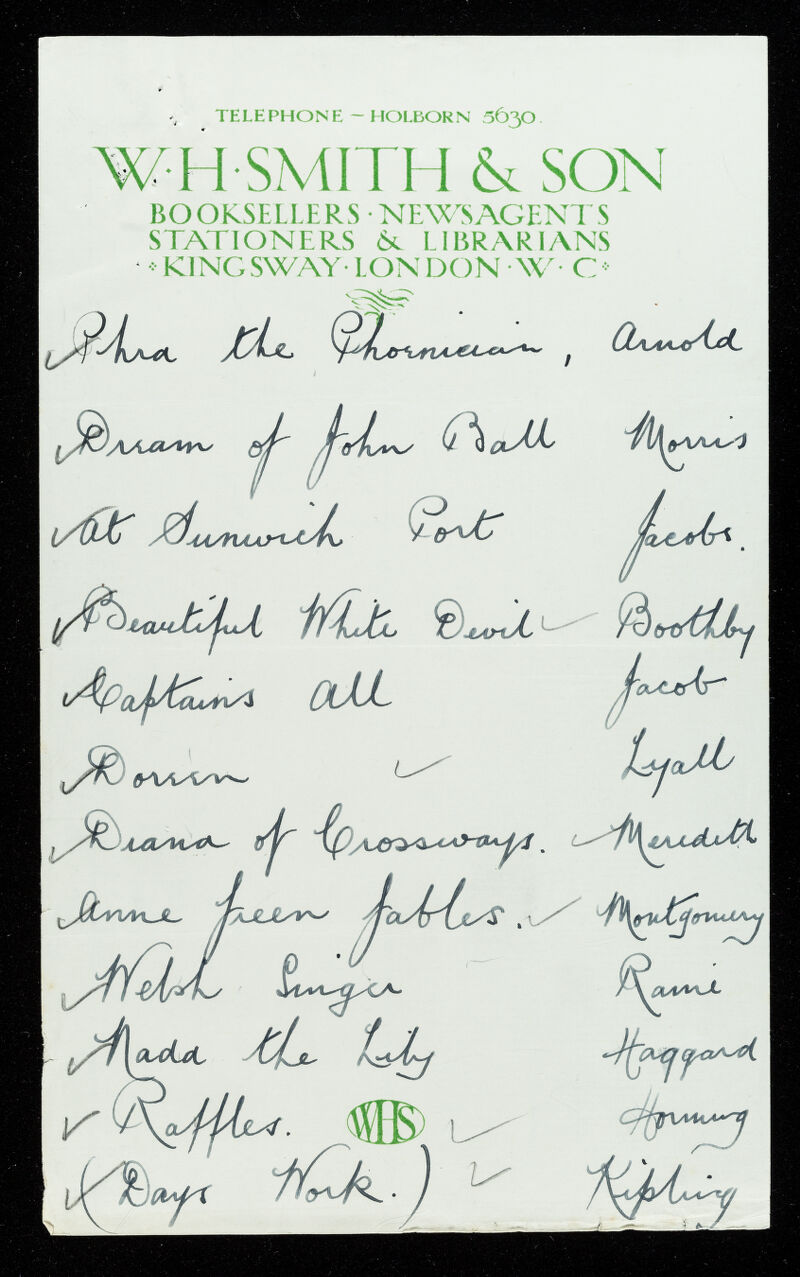 TELEPHONE – HOLBORN 5630.
W·H·SMITH & SON
BOOKSELLERS · NEWSAGENTS
STATIONERS & LIBRARIANS
KINGSWAY · LONDON · W · C
Phra the Phoenician, Arnold
Dream of John Ball Morris
At Sunwich Port Jacobs.
Beautiful White Devil Boothby
Captains All Jacob
Doreen Lyall
Diana of Crossways. Meredith
Anne Green Gables. Montgomery
Welsh Singer Raine
Nada the Lily Haggard
Raffles. WHS Hornung
(Days Work.) Kipling